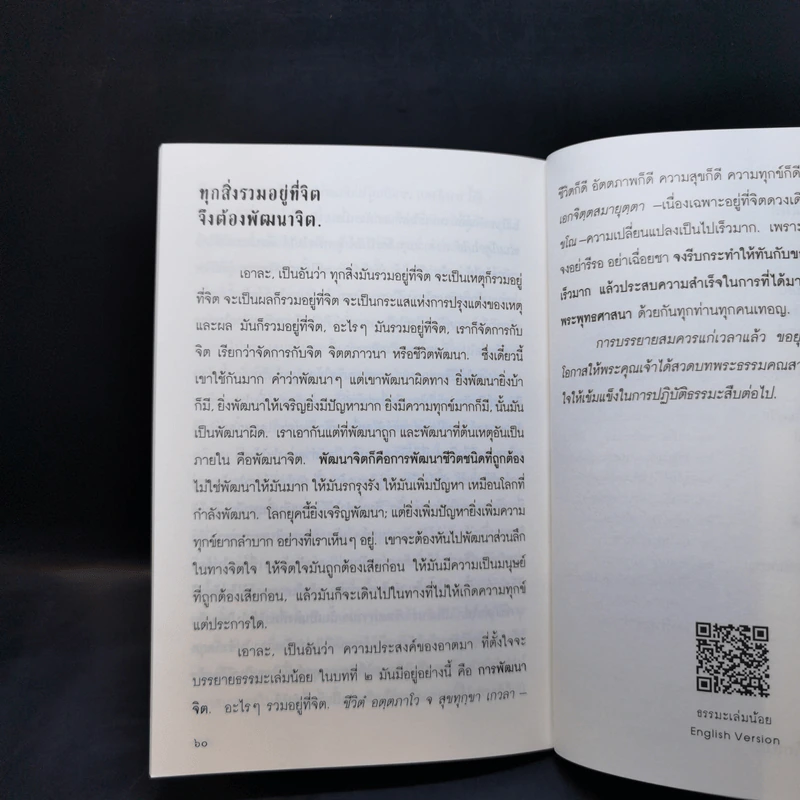 ทุกสิ่งรวมอยู่ที่จิต
จึงต้องพัฒนาจิต.
เอาละ, เป็นอันว่า ทุกสิ่งมันรวมอยู่ที่จิต จะเป็นเหตุก็รวมอยู่
ที่จิต จะเป็นผลก็รวมอยู่ที่จิต จะเป็นกระแสแห่งการปรุงแต่งของเหตุ
และผล มันก็รวมอยู่ที่จิต, อะไรๆ มันรวมอยู่ที่จิต, เราก็จัดการกับ
จิต เรียกว่าจัดการกับจิต จิตตภาวนา หรือชีวิตพัฒนา. ซึ่งเดี๋ยวนี้
เขาใช้กันมาก คำว่าพัฒนาๆ แต่เขาพัฒนาผิดทาง ยิ่งพัฒนายิ่งบ้า
ก็มี, ยิ่งพัฒนาให้เจริญยิ่งมีปัญหามาก ยิ่งมีความทุกข์มากก็มี, นั้นมัน
เป็นพัฒนาผิด. เราเอากันแต่ที่พัฒนาถูก และพัฒนาที่ต้นเหตุอันเป็น
ภายใน คือพัฒนาจิต. พัฒนาจิตก็คือการพัฒนาชีวิตชนิดที่ถูกต้อง
ไม่ใช่พัฒนาให้มันมาก ให้มันรกรุงรัง ให้มันเพิ่มปัญหา เหมือนโลกที่
กำลังพัฒนา. โลกยุคนี้ยิ่งเจริญพัฒนา; แต่ยิ่งเพิ่มปัญหายิ่งเพิ่มความ
ทุกข์ยากลำบาก อย่างที่เราเห็นๆ อยู่. เขาจะต้องหันไปพัฒนาส่วนลึก
ในทางจิตใจ ให้จิตใจมันถูกต้องเสียก่อน ให้มันมีความเป็นมนุษย์
ที่ถูกต้องเสียก่อน, แล้วมันก็จะเดินไปในทางที่ไม่ให้เกิดความทุกข์
แต่ประการใด.
เอาละ, เป็นอันว่า ความประสงค์ของอาตมา ที่ตั้งใจจะ
บรรยายธรรมะเล่มน้อย ในบทที่ ๒ มันมีอยู่อย่างนี้ คือ การพัฒนา
จิต. อะไรๆ รวมอยู่ที่จิต. ชีวิตํ อตฺตภาโว จ สุขทุกฺขา เกวลา –
๖๐
ชีวิตก็ดี อัตตภาพก็ดี ความสุขก็ดี ความทุกข์ก็ดี
เอกจิตฺตสมายุตฺตา –เนื่องเฉพาะอยู่ที่จิตดวงเดี
ขโณ –ความเปลี่ยนแปลงเป็นไปเร็วมาก. เพราะ
จงอย่ารีรอ อย่าเฉื่อยชา จงรีบกระทำให้ทันกับขณ
เร็วมาก แล้วประสบความสำเร็จในการที่ได้มา
พระพุทธศาสนา ด้วยกันทุกท่านทุกคนเทอญ.
การบรรยายสมควรแก่เวลาแล้ว ขอยุ
โอกาสให้พระคุณเจ้าได้สวดบทพระธรรมคณสา
ใจให้เข้มแข็งในการปฏิบัติธรรมะสืบต่อไป.
ธรรมะเล่มน้อย
English Version